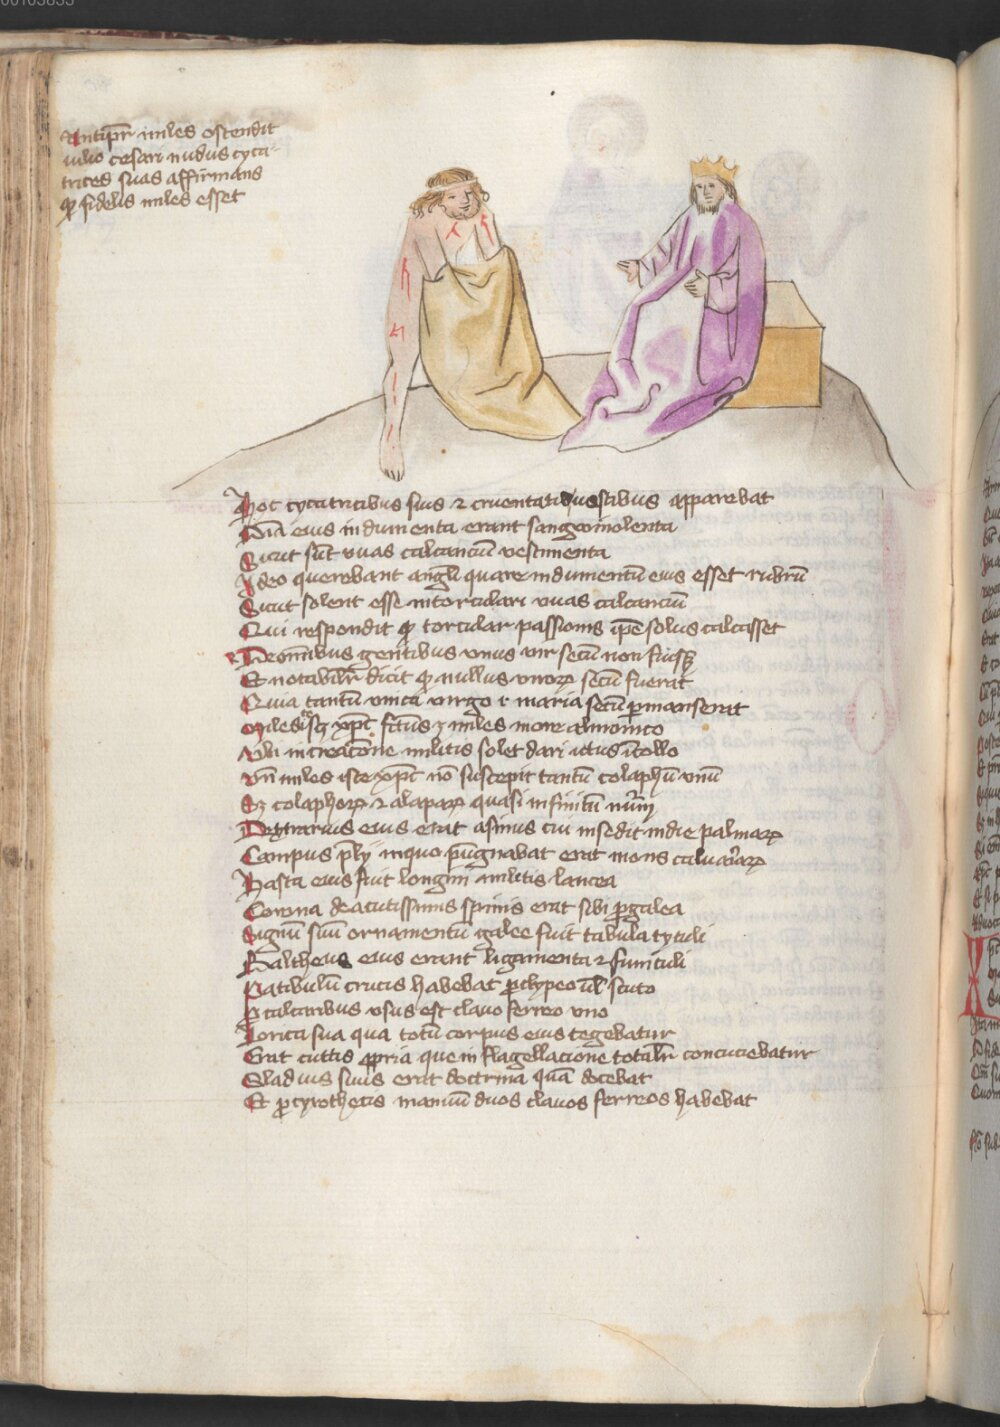 Antip̄r miles ostendit
iulio cesari nudus cyca-
trices suas affirmans
ꝙ fidelis miles esset
Hoc cycatricibus suis ⁊ cruentatis vestibus apparebat
Q̄ia eius indumenta erant sangwinolenta
Sicut sūt vuas calcanciū vestimenta
Ideo querebant angl̄i quare indumentū eius esset rubrū
Sicut solent esse in torculari vuas calcanciū
Qui respondit ꝙ torcular passionis ip̄e solus calcasset
De om̄ibus gentibus vnus vir secū non fuisset
Et notabilr̄ dicit ꝙ nullus viroꝝ secū fuerat
Quia tantū vnica virgo maria secū ꝑmanserat
Miles xp̄c fc̄us ē miles more
in creac̄one militis solet dari ictus ī collo
Vn̄ miles iste xp̄c nō suscepit tantū colaphū vnū
Sꝫ colaphoꝝ ⁊ alapaꝝ quasi infinitū num̄
Dextrarius eius erat asinus cui insedit in die palmaꝝ
Campus p̄ly in quo pūgnabat erat mons caluariaꝝ
Hasta eius fuit longini militis lancea
Corona de acutissimis spinis erat sibi ꝓ galea
Signū suū ornamentū galee fuit tabula tytuli
Baltheus eius erant ligamenta ⁊ funiculi
Patibulū crucis habebat ꝓ clypeo ul̄ scuto
ꝓ calcaribus vsus est clauo ferreo vno
Lorica sua qua totū corpus eius tegebatur
Erat cuttis ꝓpria que in flagellacione totalr̄ concuciebatur
Gladius suus erat doctrina quā docebat
Et ꝓ cyrothecis manuū duos clauos ferreos habebat